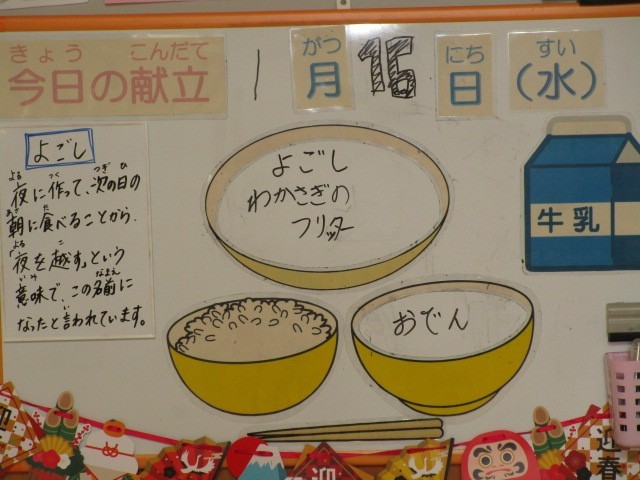 きょう こんだて
今日の献立
1 がつ 月 16 にち 日 すい (水)
よごし
よる つく つぎ ひ
夜に作って、次の日の
あさ た
朝に食べることから、
よる こ
"夜を越す"という
いみ なまえ
意味で、この名前に
い
なったと言われています。
よごし
わかさぎの
フリッター
牛乳
おでん
迎
迎
迎春